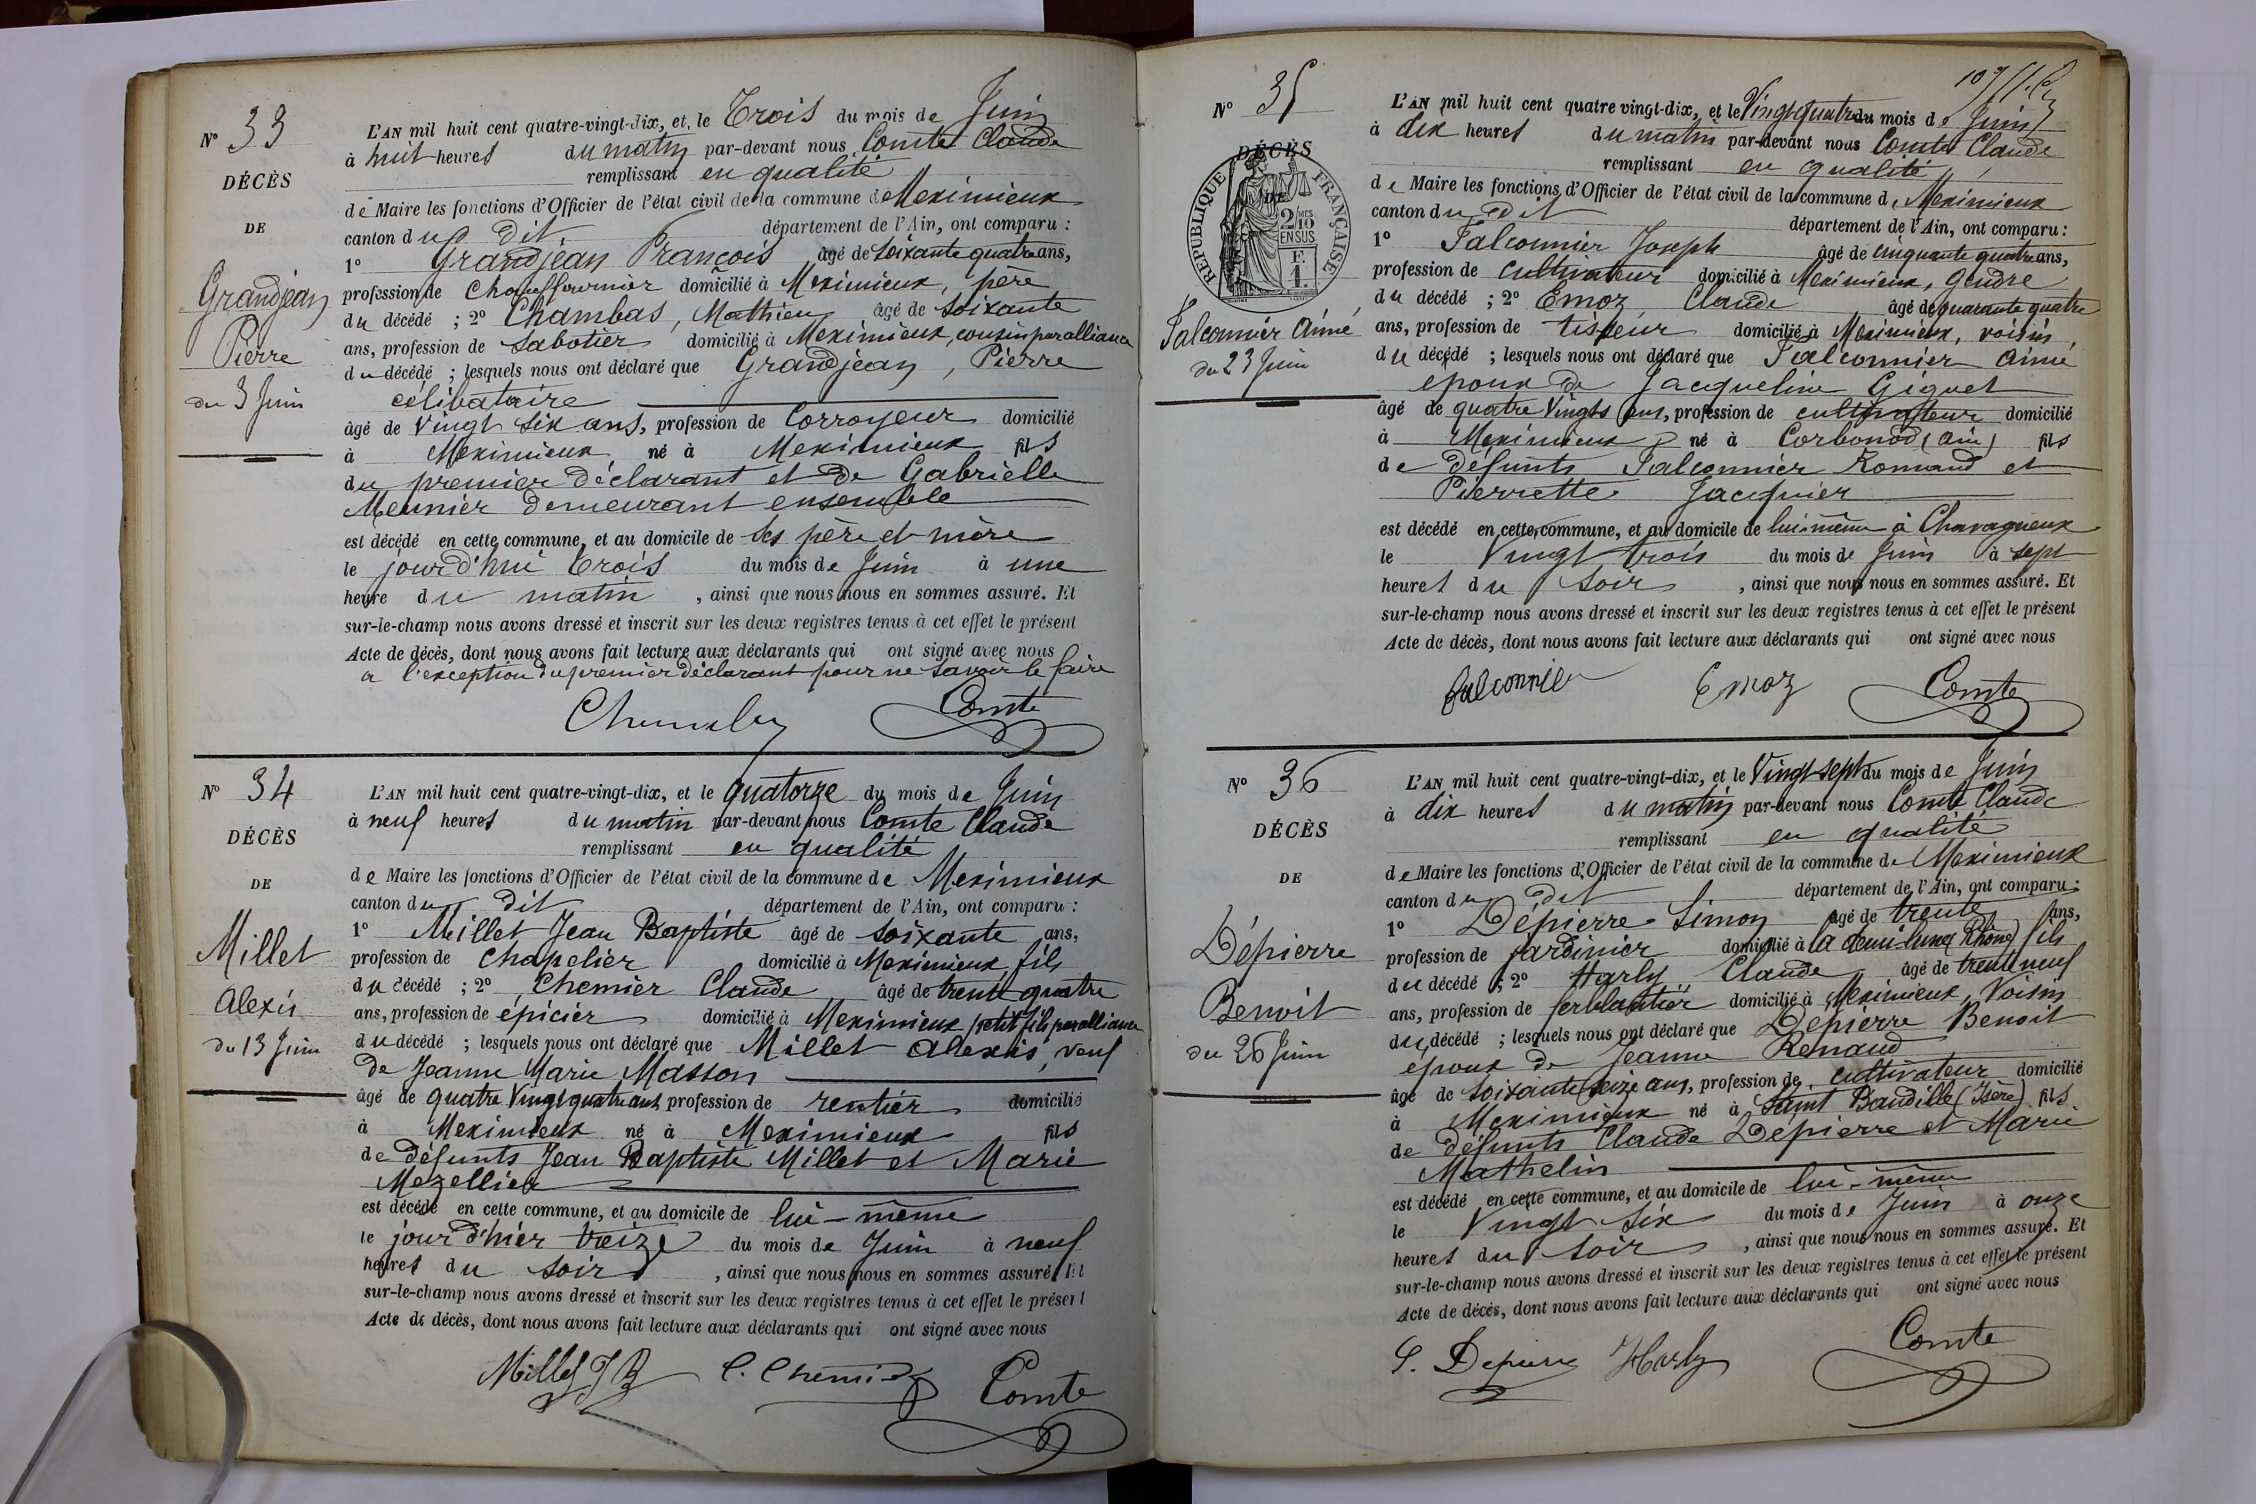 N° 33
DÉCÈS
DE
Grandjean
Pierre
du 3 Juin
L'AN mil huit cent quatre-vingt-dix, et le Trois du mois de Juin
à huit heures du matin par-devant nous Comte Claude
remplissant en qualité
de Maire les fonctions d'Officier de l'état civil de la commune de Meximieux
canton du dit département de l'Ain, ont comparu :
1° Grandjean François âgé de soixante quatre ans,
profession de Chauffournier domicilié à Meximieux, père
du décédé ; 2° Chambas, Mathieu âgé de soixante
ans, profession de sabotier domicilié à Meximieux, cousin par alliance
du décédé ; lesquels nous ont déclaré que Grandjean, Pierre
célibataire
âgé de vingt six ans, profession de Corroyeur domicilié
à Meximieux né à Meximieux fils
du premier déclarant et de Gabrielle
Meunier demeurant ensemble
est décédé en cette commune, et au domicile de ses père et mère
le jourd'hui trois du mois de Juin à une
heure du matin, ainsi que nous nous en sommes assuré. Et
sur-le-champ nous avons dressé et inscrit sur les deux registres tenus à cet effet le présent
Acte de décès, dont nous avons fait lecture aux déclarants qui ont signé avec nous
à l'exception du premier déclarant pour ne savoir le faire
Comte
N° 34
DÉCÈS
DE
Millet
Alexis
du 13 Juin
L'AN mil huit cent quatre-vingt-dix, et le quatorze du mois de Juin
à neuf heures du matin par-devant nous Comte Claude
remplissant en qualité
de Maire les fonctions d'Officier de l'état civil de la commune de Meximieux
canton du dit département de l'Ain, ont comparu :
1° Millet Jean Baptiste âgé de soixante ans,
profession de chapelier domicilié à Meximieux fils
du décédé ; 2° Chemier Claude âgé de trente quatre
ans, profession de épicier domicilié à Meximieux petit fils par alliance
du décédé ; lesquels nous ont déclaré que Millet Alexis, veuf
de Jeanne Marie Masson
âgé de quatre vingt quatre ans profession de rentier domicilié
à Meximieux né à Meximieux fils
de défunts Jean Baptiste Millet et Marie
est décédé en cette commune, et au domicile de lui-même
le jour d'hier treize du mois de Juin à neuf
heures du soir, ainsi que nous nous en sommes assuré. Et
sur-le-champ nous avons dressé et inscrit sur les deux registres tenus à cet effet le présent
Acte de décès, dont nous avons fait lecture aux déclarants qui ont signé avec nous
Millet JB C. Chemier Comte
N° 35
DÉCÈS
DE
RÉPUBLIQUE FRANÇAISE
2/10 MES
EN SUS
F.
1.
Falconnier Aimé
du 23 Juin
L'AN mil huit cent quatre vingt-dix, et le vingt quatre du mois de Juin
à dix heures du matin par-devant nous Comte Claude
remplissant en qualité
de Maire les fonctions d'Officier de l'état civil de la commune de Meximieux
canton du dit département de l'Ain, ont comparu :
1° Falconnier Joseph âgé de cinquante quatre ans,
profession de cultivateur domicilié à Meximieux, gendre
du décédé ; 2° Emoz Claude âgé de quarante quatre
ans, profession de tisseur domicilié à Meximieux, voisin
du décédé ; lesquels nous ont déclaré que Falconnier Aimé
époux de Jacqueline Giguet
âgé de quatre vingts ans, profession de cultivateur domicilié
à Meximieux né à Corbonod (Ain) fils
de défunts Falconnier Romand et
Pierrette Jacquier
est décédé en cette commune, et au domicile de lui-même à Chavagneux
le vingt trois du mois de Juin à sept
heures du soir, ainsi que nous nous en sommes assuré. Et
sur-le-champ nous avons dressé et inscrit sur les deux registres tenus à cet effet le présent
Acte de décès, dont nous avons fait lecture aux déclarants qui ont signé avec nous
falconnier Emoz Comte
N° 36
DÉCÈS
DE
Dépierre
Benoit
du 26 Juin
L'AN mil huit cent quatre-vingt-dix, et le vingt sept du mois de Juin
à dix heures du matin par-devant nous Comte Claude
remplissant en qualité
de Maire les fonctions d'Officier de l'état civil de la commune de Meximieux
canton du dit département de l'Ain, ont comparu :
1° Dépierre Simon âgé de trente ans,
profession de jardinier domicilié à la demi-lune (Rhône) fils
du décédé ; 2° Harly Claude âgé de trente neuf
ans, profession de ferblantier domicilié à Meximieux, voisin
du décédé ; lesquels nous ont déclaré que Dépierre Benoit
époux de Jeanne Renaud
âgé de soixante seize ans, profession de cultivateur domicilié
à Meximieux né à Saint Baudille (Isère) fils
de défunts Claude Dépierre et Marie
Mathelin
est décédé en cette commune, et au domicile de lui-même
le vingt six du mois de Juin à onze
heures du soir, ainsi que nous nous en sommes assuré. Et
sur-le-champ nous avons dressé et inscrit sur les deux registres tenus à cet effet le présent
Acte de décès, dont nous avons fait lecture aux déclarants qui ont signé avec nous
S. Depierre Harly Comte